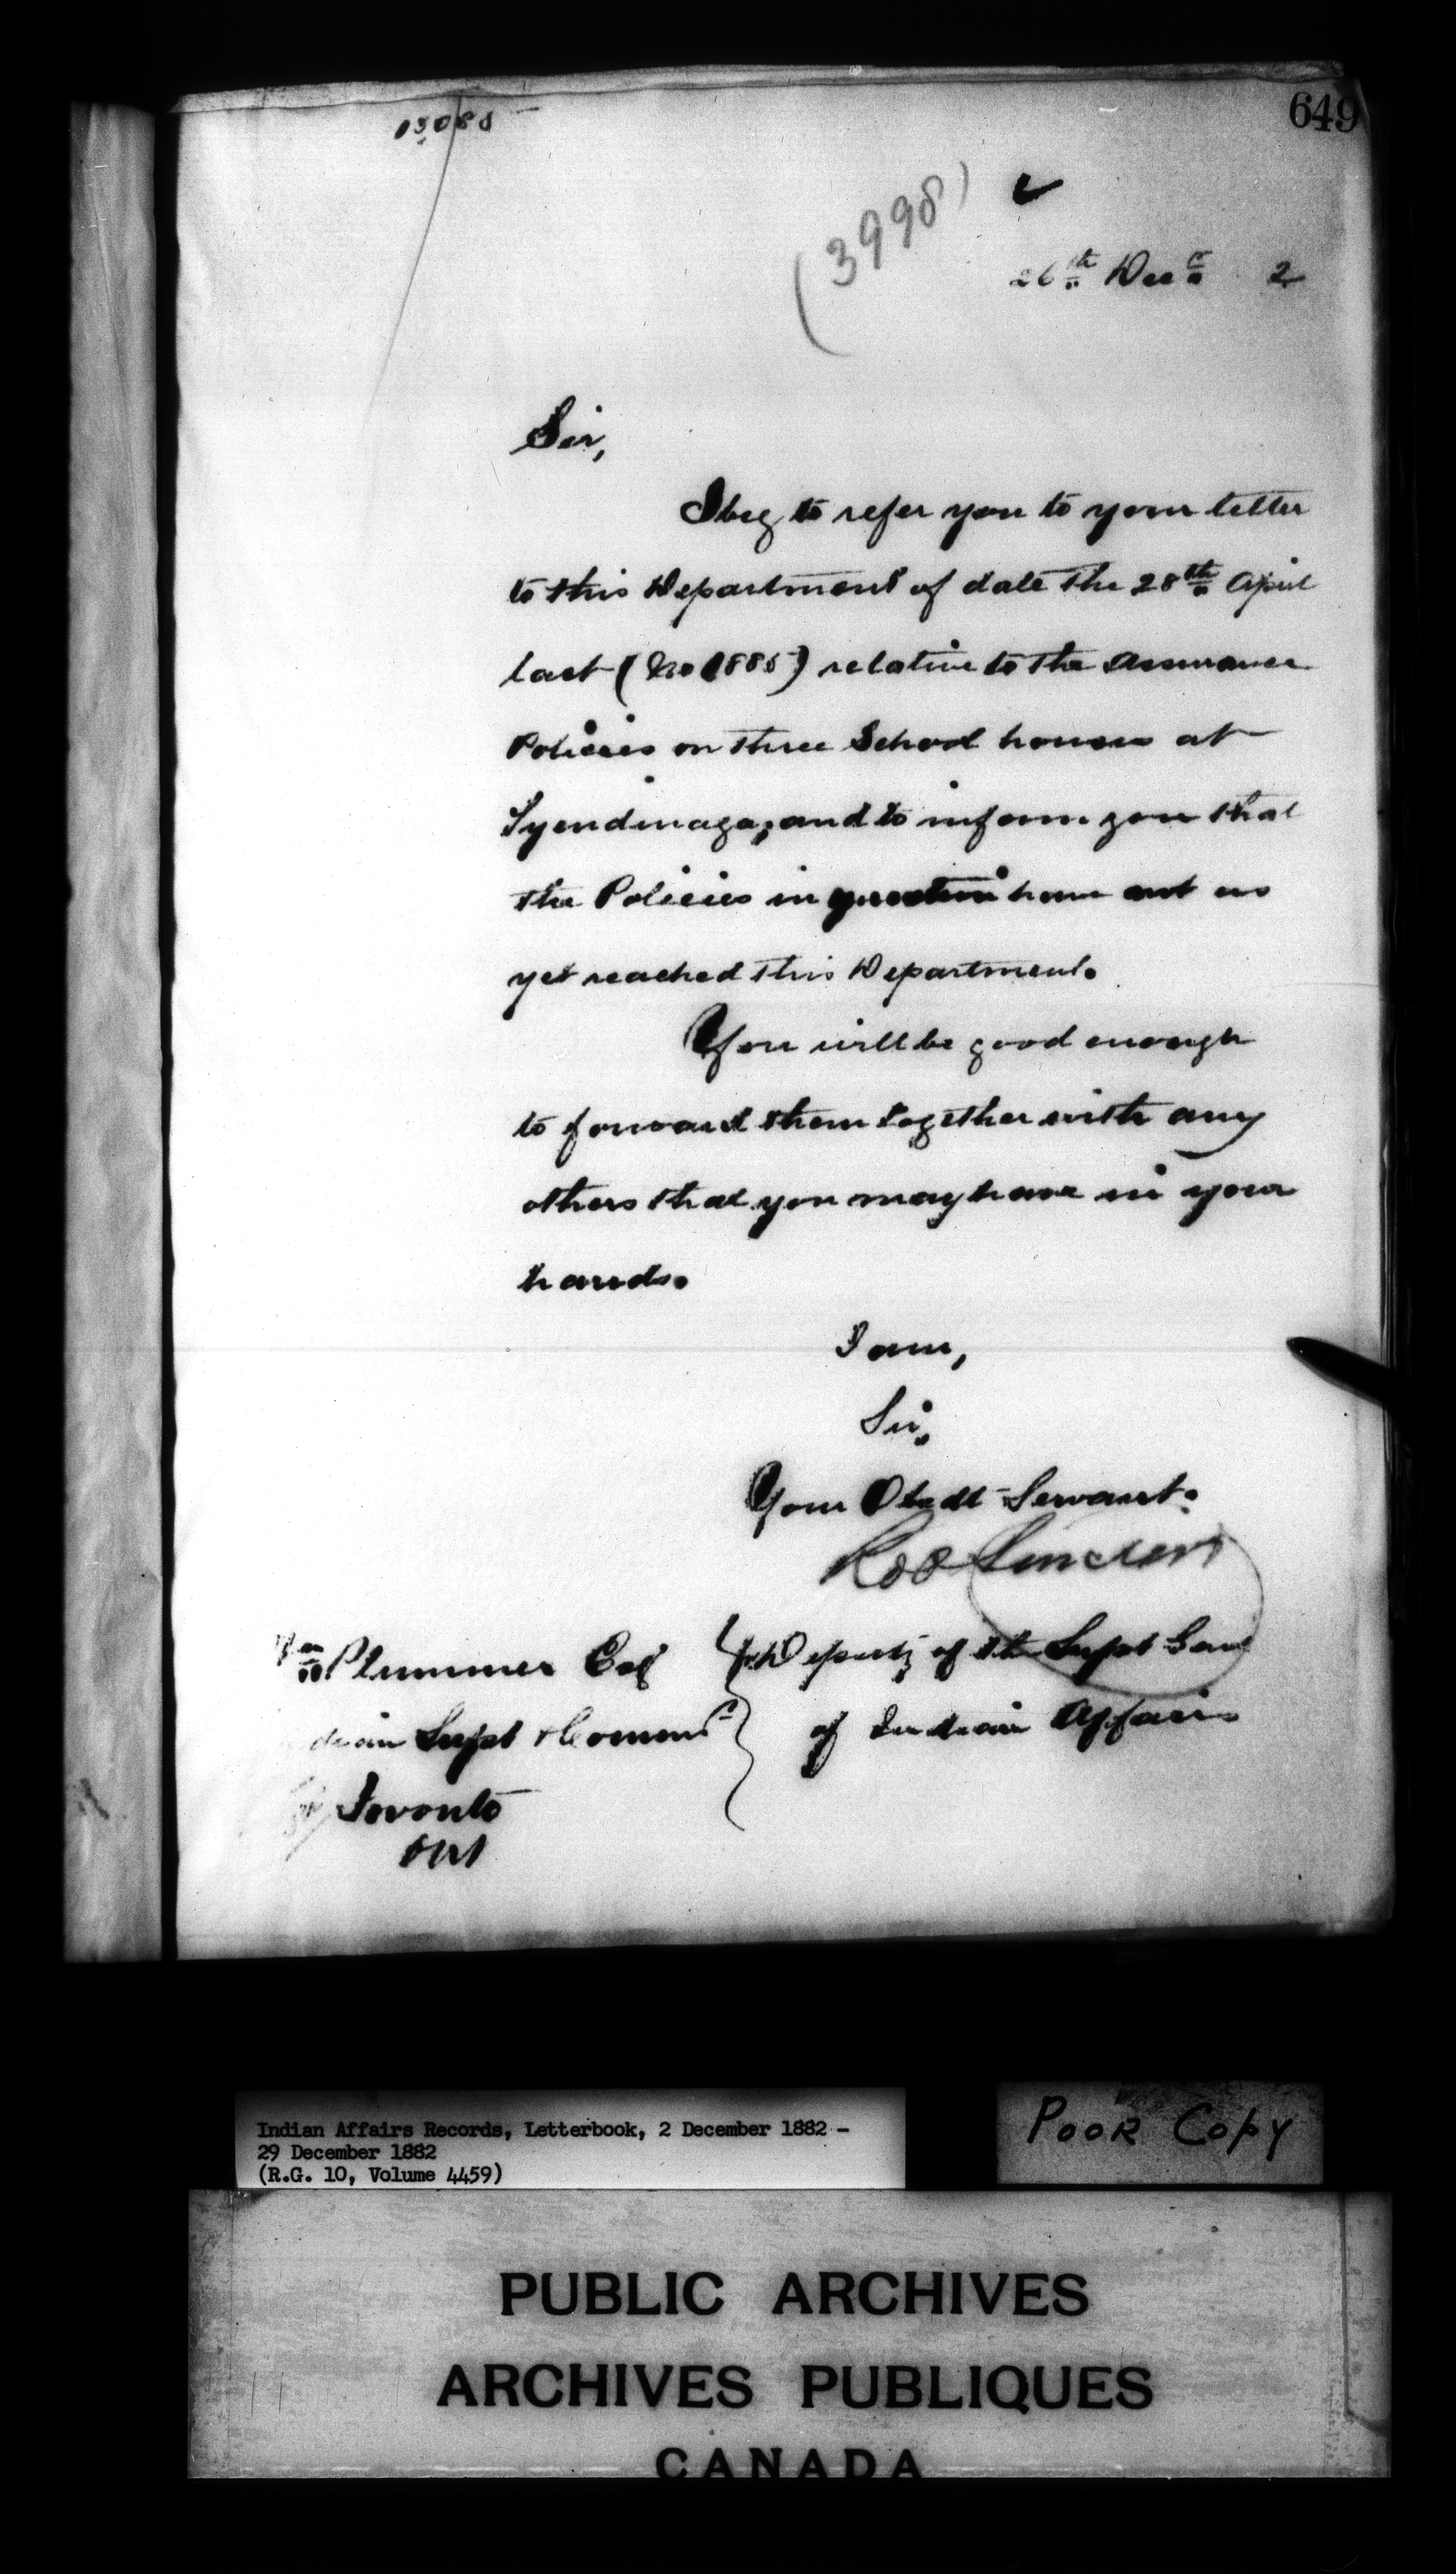 649
(3998)
26th Decr 2
Sir,
I beg to refer you to your letter
to this Department of date the 28th April
last (No 1885) relative to the Assurance
Policies on three School houses at
Tyendinaga, and to inform you that
the Policies in question have not as
yet reached this Department.
You will be good enough
to forward them together with any
others that you may have in your
hands.
I am,
Sir,
Your Obedt Servant.
Wm Plummer Esq
dian Supt & Commr
Toronto
Ont
Deputy of the Supt Genl
of Indian Affairs
Indian Affairs Records, Letterbook, 2 December 1882 -
29 December 1882
(R.G. 10, Volume 4459)
POOR COPY
PUBLIC ARCHIVES
ARCHIVES PUBLIQUES
CANADA